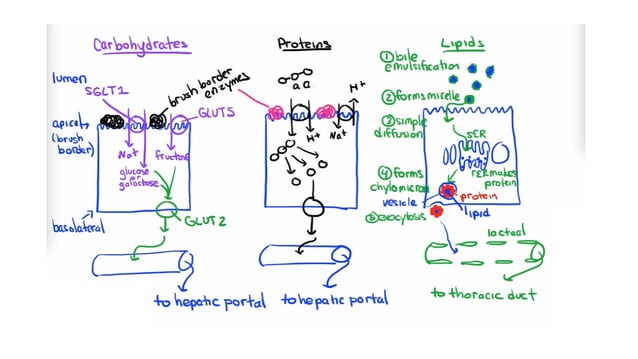 Carbohydrates
Proteins
Lipids
lumen
SGLT1
brush border
enzymes
GLUT5
apical
(brush
border)
Na+
glucose
galactose
fructose
GLUT2
basolateral
to hepatic portal
aa
H+
H+
Na+
to hepatic portal
① bile
emulsification
② forms micelle
③ simple
diffusion
sER
rER makes
protein
④ forms
chylomicron
vesicle
protein
lipid
⑤ exocytosis
lacteal
to thoracic duct